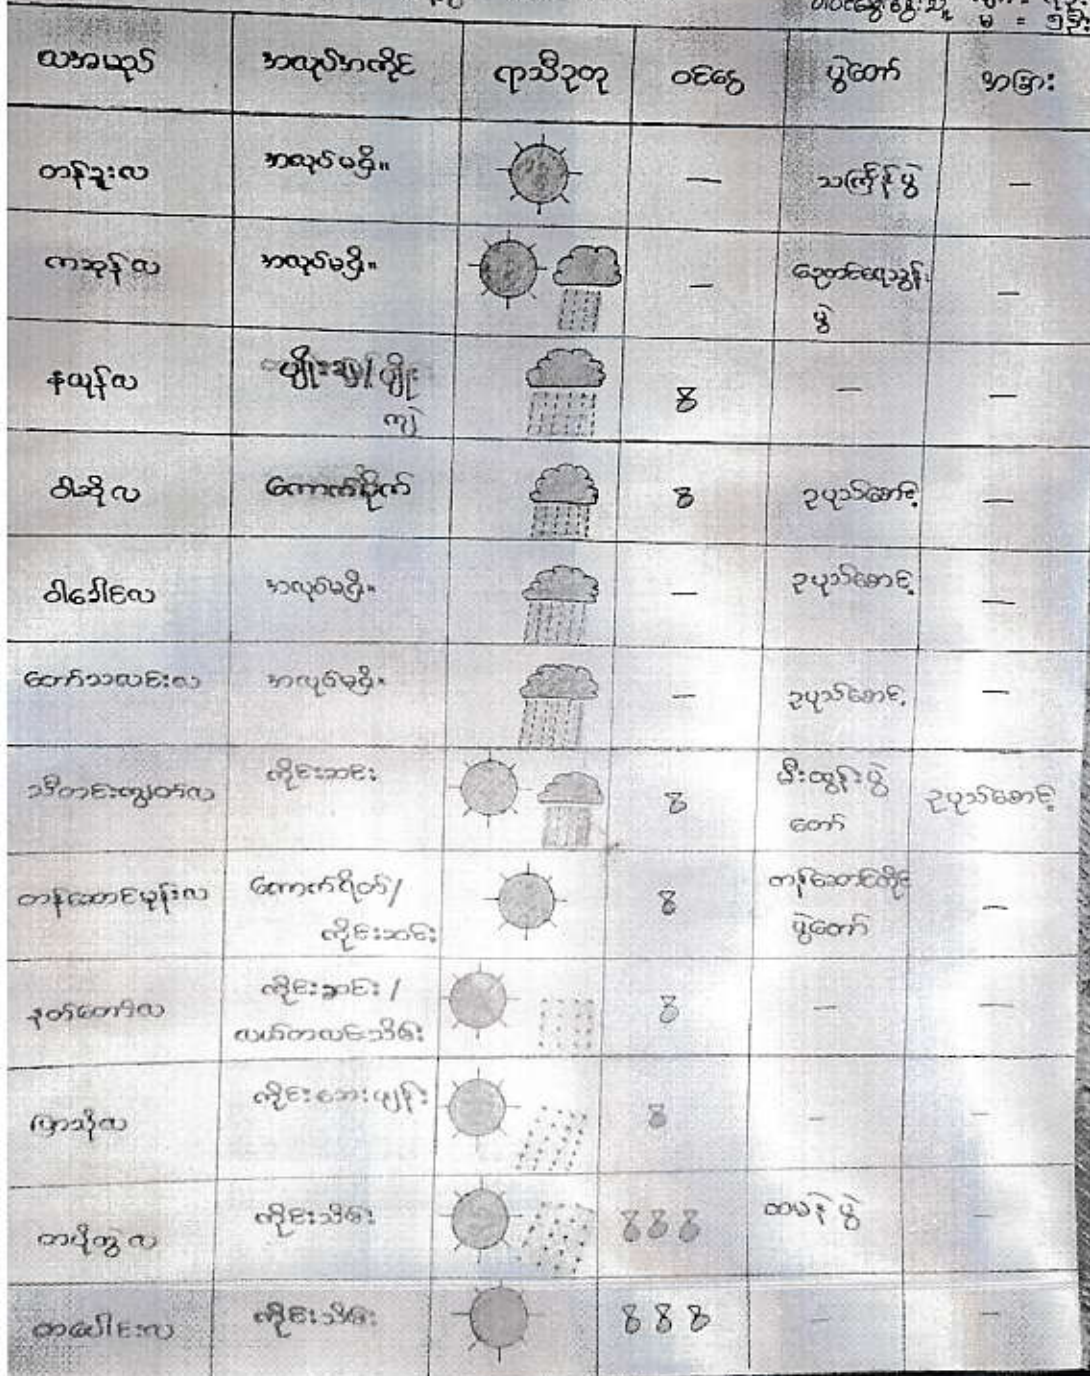 လအမည် အလုပ်အကိုင် ရာသီဥတု ဝင်ငွေ ပွဲတော် အခြား
တန်ခူးလ အလုပ်မရှိ။ — သင်္ကြန်ပွဲ —
ကဆုန်လ အလုပ်မရှိ။ — ညောင်ရေသွန်း —
ပွဲ
နယုန်လ ပျိုး / ပျိုး 8 — —
ကျဲ
ဝါဆိုလ ကောက်စိုက် 8 ဥပုသ်စောင့် —
ဝါခေါင်လ အလုပ်မရှိ။ — ဥပုသ်စောင့် —
တော်သလင်းလ အလုပ်မရှိ။ — ဥပုသ်စောင့် —
သီတင်းကျွတ်လ ကိုင်းဆင်း 8 မီးထွန်းပွဲ ဥပုသ်စောင့်
တော်
တန်ဆောင်မုန်းလ ကောက်ရိတ်/ 8 တန်ဆောင်တိုင် —
ကိုင်းဆင်း ပွဲတော်
နတ်တော်လ ကိုင်းဆင်း / 8 — —
လယ်ကလင်သိမ်း
ပြာသိုလ ကိုင်းဆေးဖျန်း 8 — —
တပို့တွဲလ ကိုင်းသိမ်း 8 8 8 ထမနဲပွဲ —
တပေါင်းလ ကိုင်းသိမ်း 8 8 8 — —